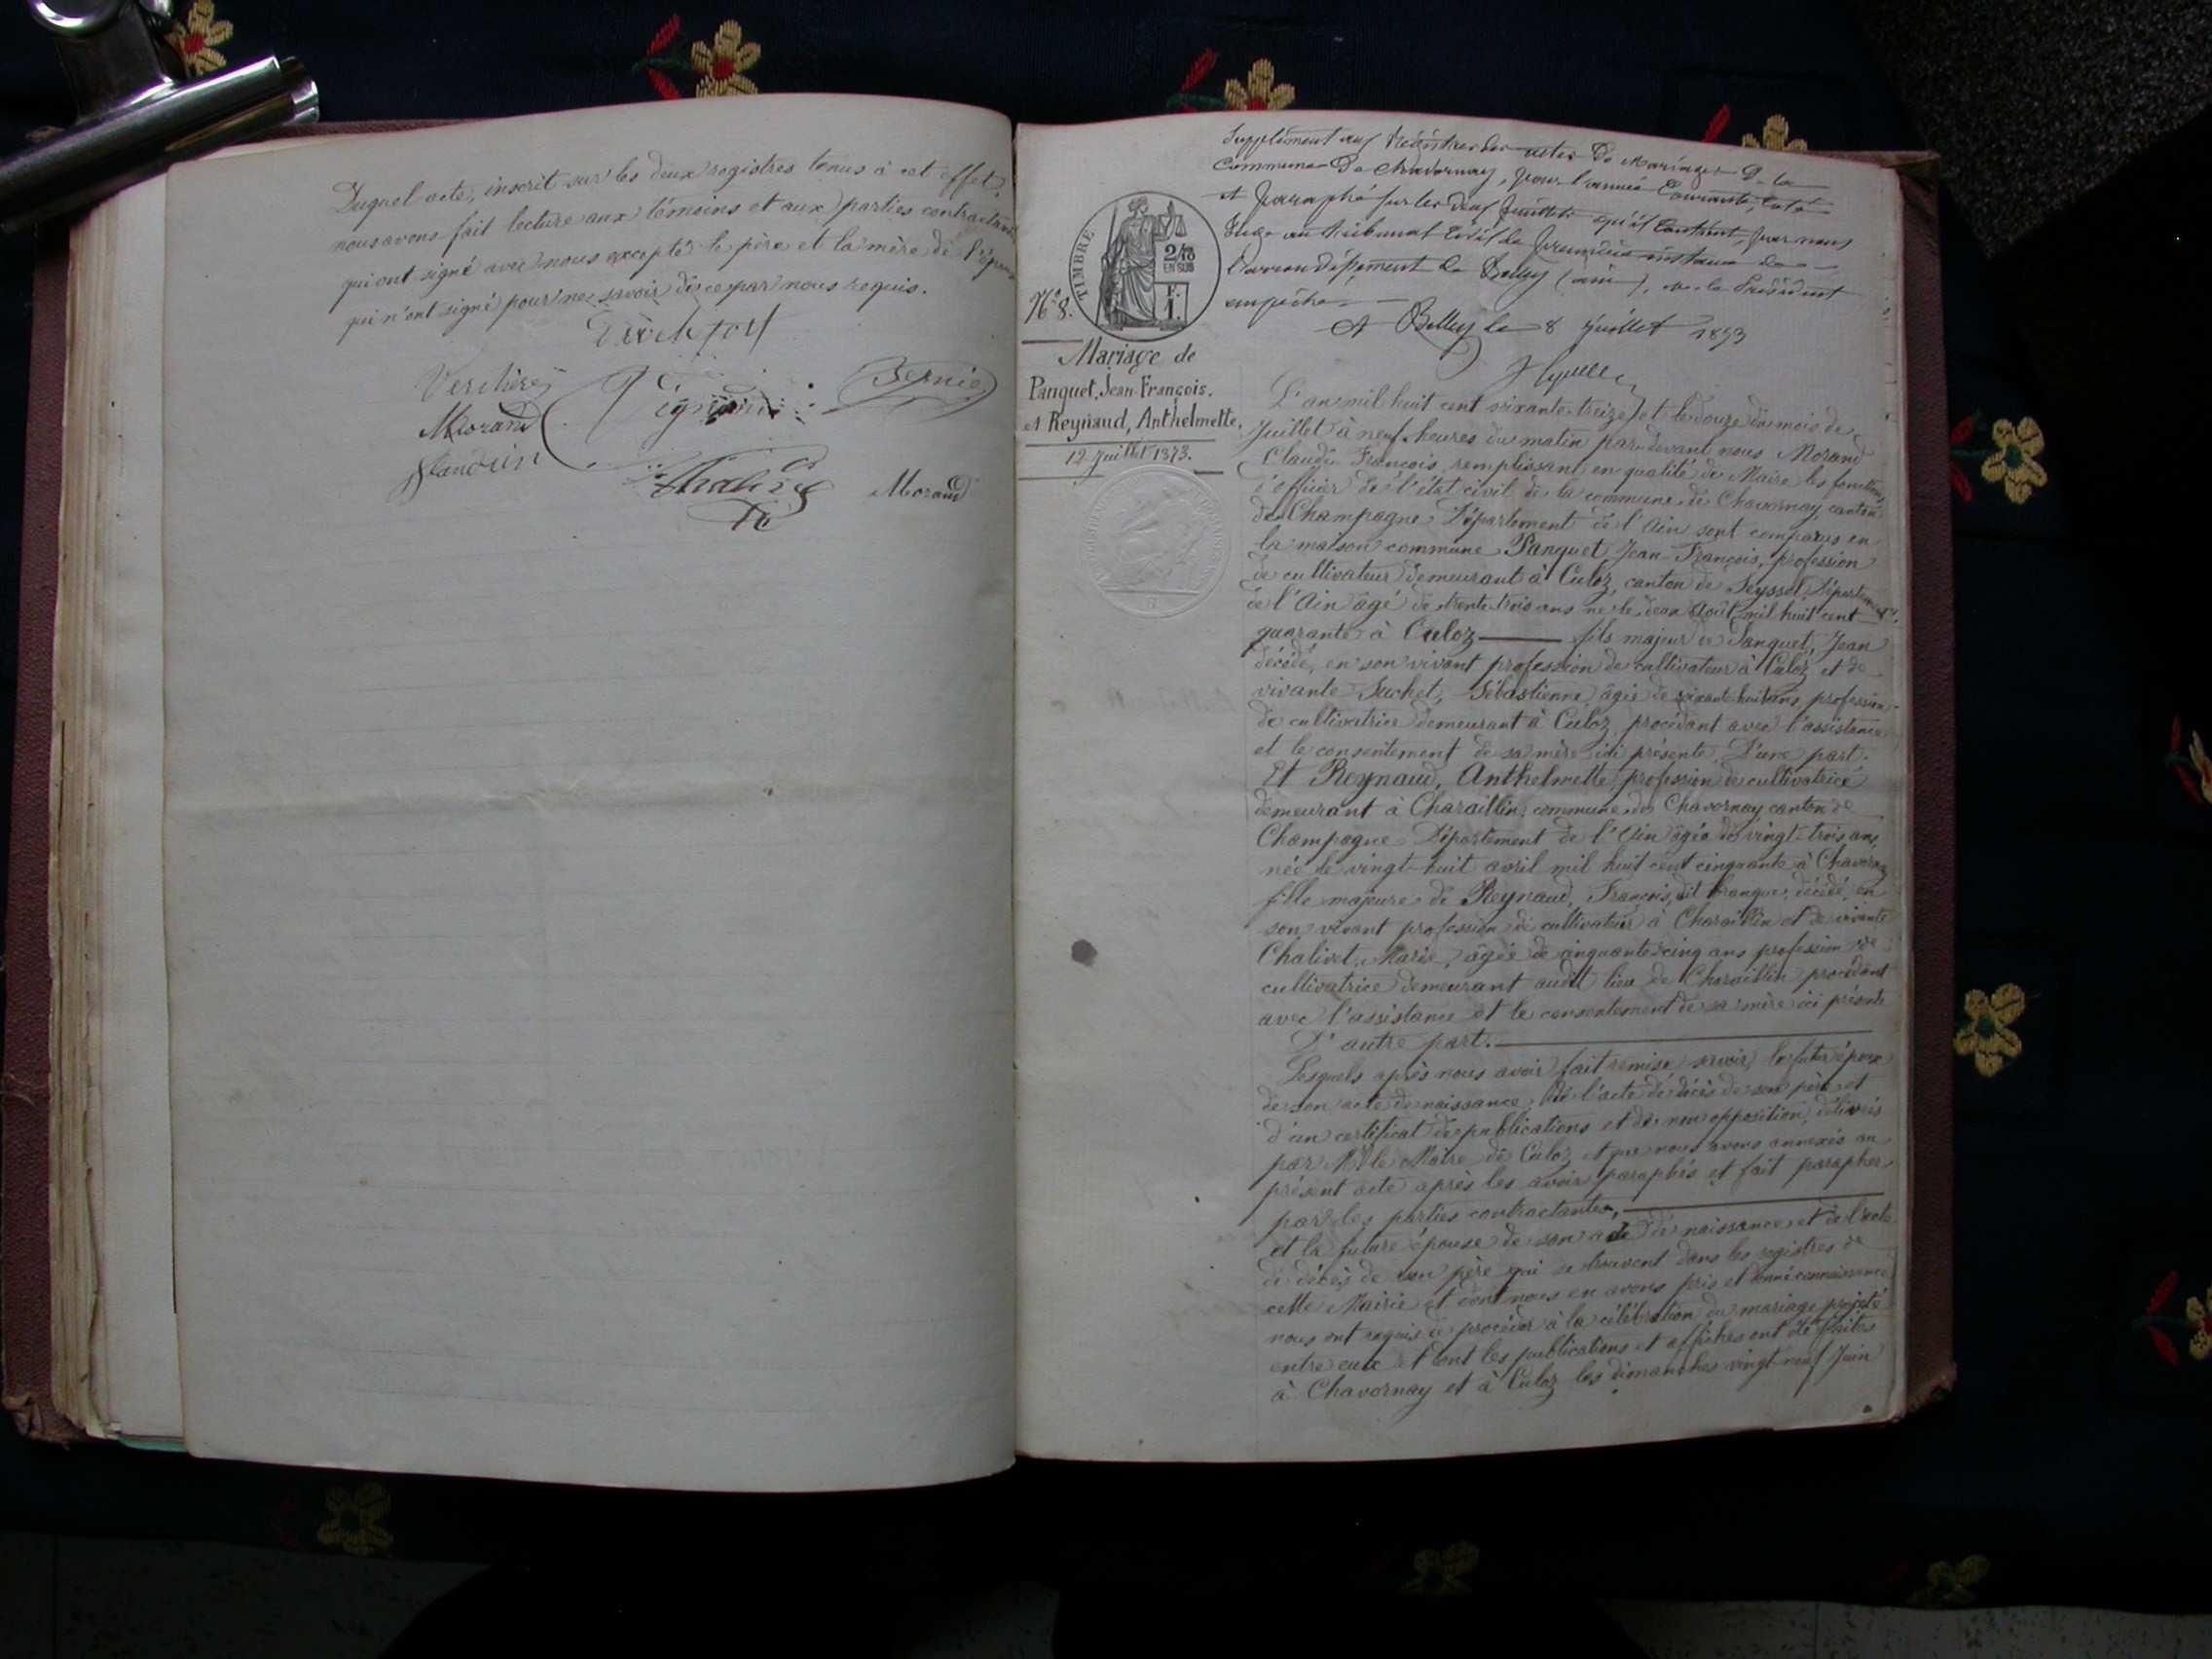 Duquel acte, inscrit sur les deux registres tenus à cet effet,
nous avons fait lecture aux témoins et aux parties contractantes
qui ont signé avec nous excepté le père et la mère de l'épouse
qui n'ont signé pour ne savoir de ce par nous requis.
Verchère
Morand
Bernie
Morand
Supplément au Registre des actes de Mariage De la
Commune De Chavornay, pour l'année Courante, Coté
et paraphé sur les deux feuillets qu'il contient, par nous
Juge au tribunal Civil de première instance de
l'arrondissement de Belley (ain), M. le Président
empêché
A Belley le 8 juillet 1873
TIMBRE
2/10
EN SUS
F.
1.
N° 8.
Mariage de
Panquet, Jean-François.
et Reynaud, Anthelmette.
12 Juillet 1873.
L'an mil huit cent soixante-treize et le douze du mois de
Juillet à neuf heures du matin par devant nous Morand
Claude François remplissant en qualité de Maire les fonctions
d'officier de l'état civil de la commune de Chavornay, canton
de Champagne Département de l'Ain sont comparus en
la maison commune Panquet Jean-François, profession
de cultivateur demeurant à Culoz, canton de Seyssel, Département
de l'Ain âgé de trente-trois ans né le deux Août mil huit cent
quarante à Culoz fils majeur de Panquet, Jean
décédé, en son vivant profession de cultivateur à Culoz et de
vivante Suchet, Sébastienne, âgée de soixante huit ans profession
de cultivatrice demeurant à Culoz, procédant avec l'assistance
et le consentement de sa mère ici présente, D'une part.
Et Reynaud, Anthelmette profession de cultivatrice
demeurant à Charaillin, commune de Chavornay canton de
Champagne Département de l'Ain âgée de vingt-trois ans,
née le vingt-huit avril mil huit cent cinquante à Chavornay
fille majeure de Reynaud, François, dit décédé, en
son vivant profession de cultivateur à Charaillin et de vivante
Chalivet, Marie, âgée de cinquante-cinq ans profession de
cultivatrice demeurant audit lieu de Charaillin procédant
avec l'assistance et le consentement de sa mère ici présente
D'autre part.
Lesquels après nous avoir fait remise savoir, le futur époux
de son acte de naissance, de l'acte de décès de son père et
d'un certificat de publications et de non opposition, délivrés
par Mr le Maire de Culoz et que nous avons annexés au
présent acte après les avoir paraphés et fait parapher
par les parties contractantes,
et la future épouse de son acte de naissance et de l'acte
de décès de son père qui se trouvent dans les registres de
cette Mairie et dont nous en avons pris et donné connaissance
nous ont requis de procéder à la célébration du mariage projeté
entre eux et dont les publications et affiches ont été faites
à Chavornay et à Culoz les dimanches vingt-neuf Juin